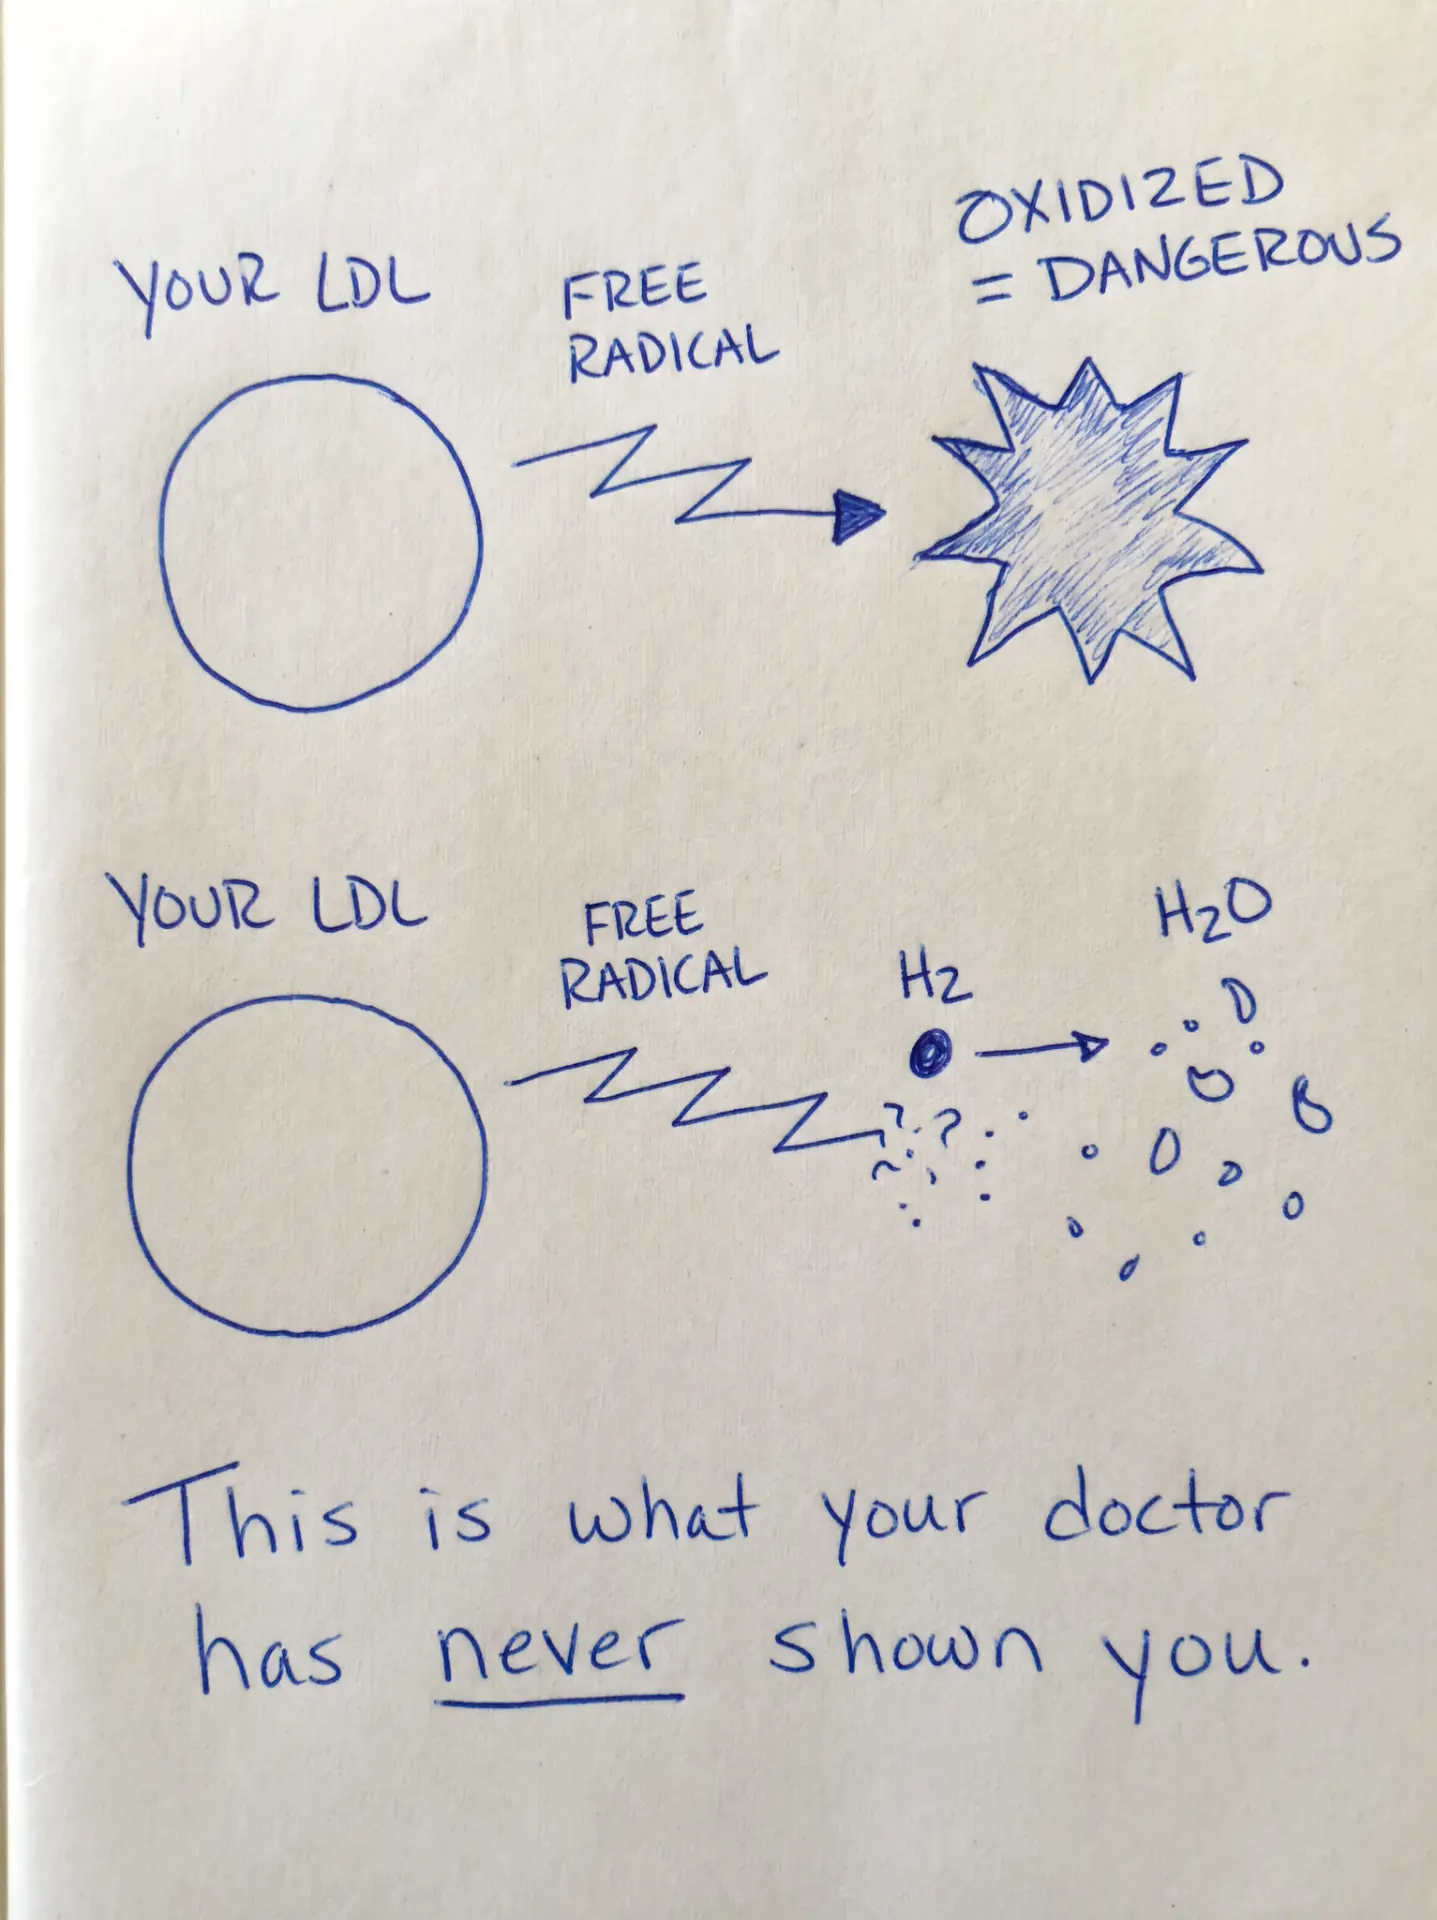 YOUR LDL
FREE
RADICAL
OXIDIZED
= DANGEROUS
YOUR LDL
FREE
RADICAL
H2
H2O
? ?
This is what your doctor
has never shown you.